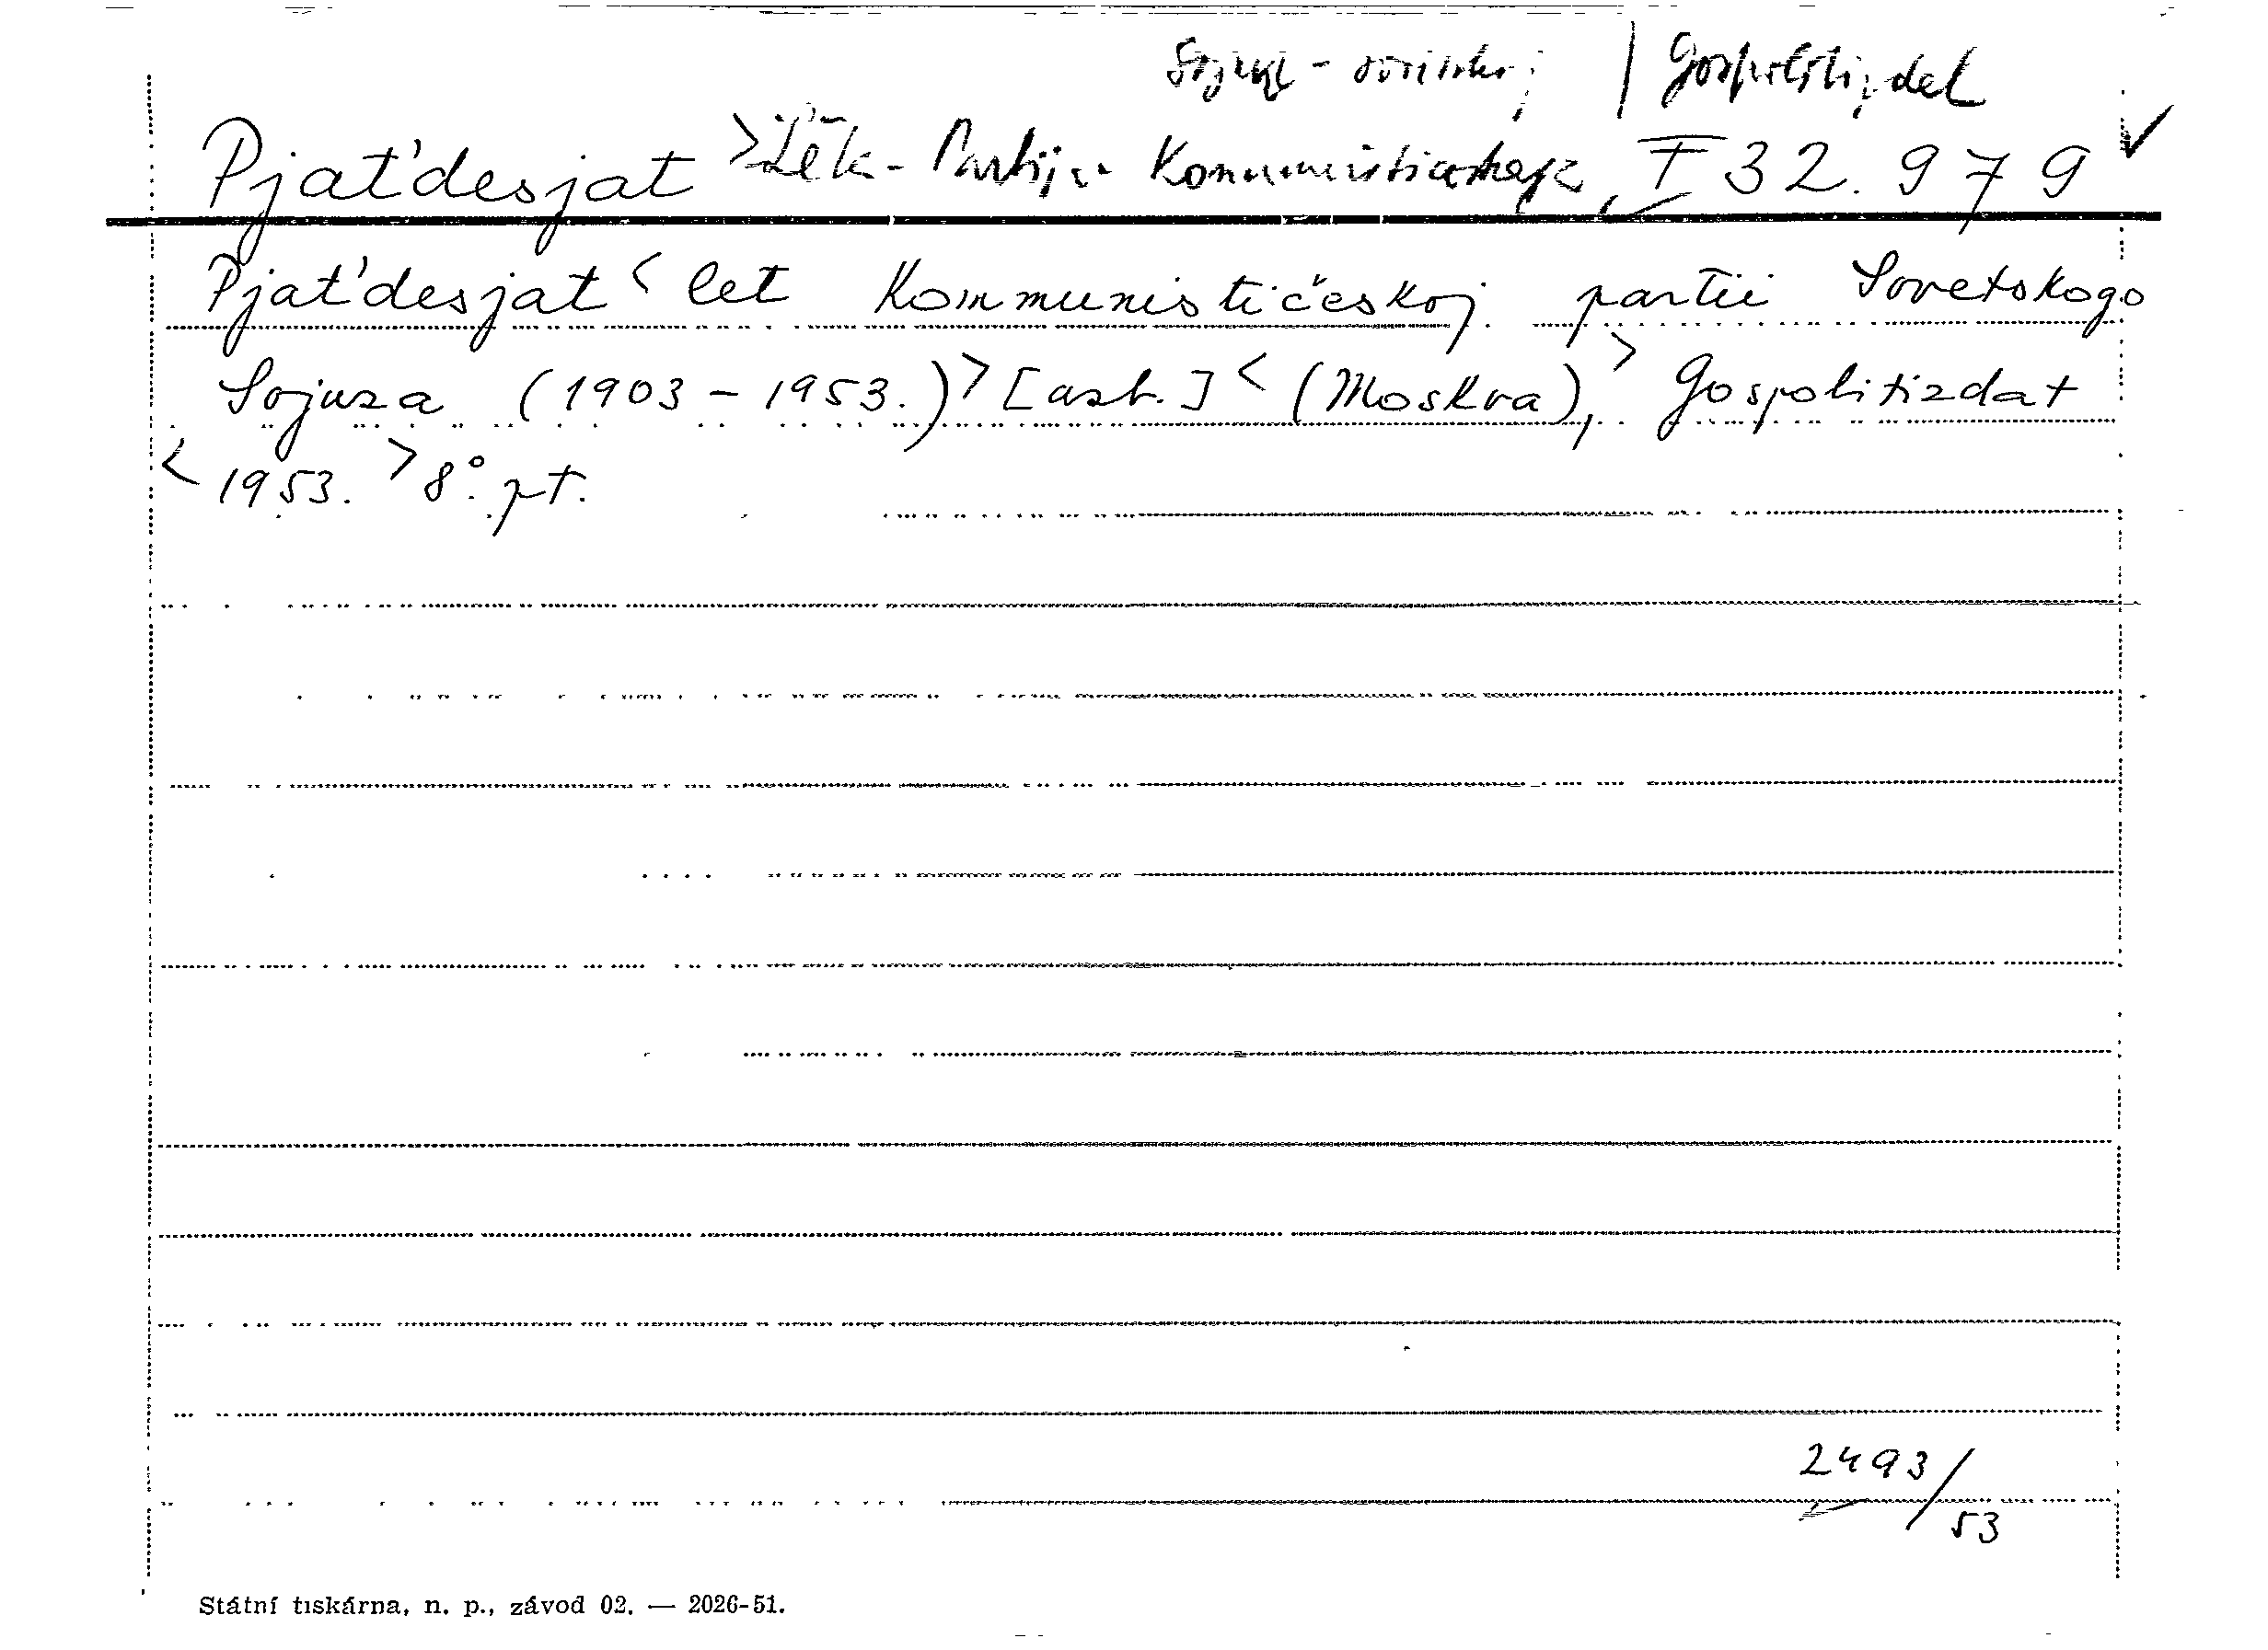 | Gospolitizdat
Pjaťdesjat > Lět - Partija Kommunističeskaja, I 32.979
Pjaťdesjat < let Kommunističeskoj partii Sovetskogo
Sojuza (1903-1953.) > [azb.] < (Moskva), > Gospolitizdat
< 1953. > 8°. pt.
2493/53
Státní tiskárna, n. p., závod 02. — 2026-51.